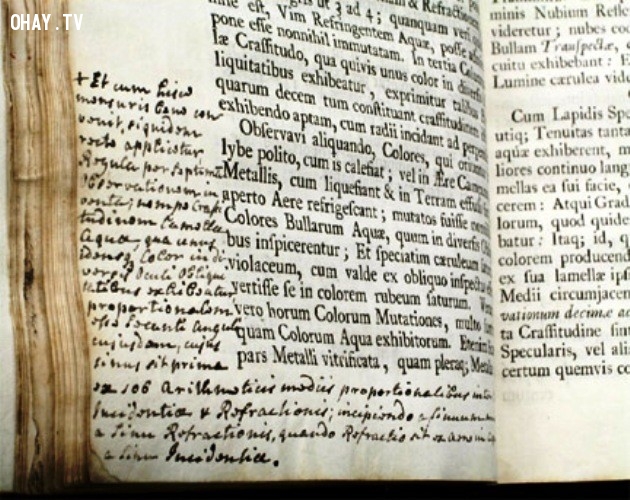 OHAY.TV
& Refractionis
ut 3 ad 4; quanquam veri
mne est, Vim Refringentem Aquæ, posse
pone esse nonnihil immutatam. In tertia
læ Crassitudo, qua quivis unus color in diversis
liquitatibus exhibeatur, exprimitur talibus
quarum decem tum constituant crassitudinem
exhibendo aptam, cum radii incidant ad
Observavi aliquando, Colores, qui
lybe polito, cum is calefiat; vel in Ære
Metallis, cum liquefiant & in Terram effusa
aperto Aere refrigescant; mutatos fuisse
Colores Bullarum Aquæ, quum in diversis
bus inspicerentur; Et speciatim cæruleum
violaceum, cum valde ex obliquo inspectus
vertisse se in colorem rubeum saturum.
vero horum Colorum Mutationes, multo
quam Colorum Aqua exhibitorum. Etenim
pars Metalli vitrificata, quam pleraq; Metalla
+ Et cum hisce
mensuris bene con
venit, siquidem
recte applicetur
Regula per septimam
Observationem in
venta; nempe Crassi
tudinem Lamellæ
Aquæ, qua unus
idemq; Color in di
versis Oculi Obliqui
tatibus exhibeatur
proportionalem
esse Secanti anguli
cujusdam, cujus
sinus sit prima
ex 106 Arithmeticis mediis proportionalibus inter
Incidentiæ & Refractionis; incipiendo a sinuum
a Sinu Refractionis, quando Refractio sit ex aere in
a sinu Incidentiæ.
minis Nubium Refle
videretur; nubes
Bullam Transpectæ,
cuitu exhibebant:
Lumine cærulea
Cum Lapidis Spe
utiq; Tenuitas tanta
aquæ exhiberent, m
liores continuo
mellas ea sui facie,
cerem: Atqui Grad
lorum, quod quide
batur: Itaq; id, q
colorem producend
ex sua lamellæ ips
Medii circumjacen
vationum decimæ
ta Crassitudine
Specularis, vel ali
certum quemvis co